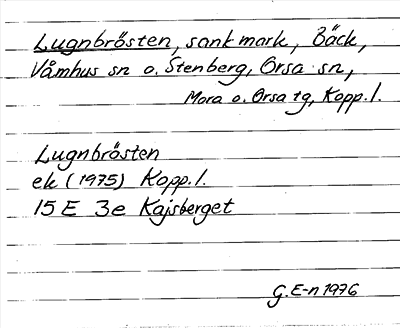 Lugnbrösten, sank mark, Bäck,
Våmhus sn o. Stenberg, Orsa sn,
Mora o. Orsa tg, Kopp.l.
Lugnbrösten
ek (1975) Kopp.l.
15 E 3e Kajsberget
G.E-n 1976